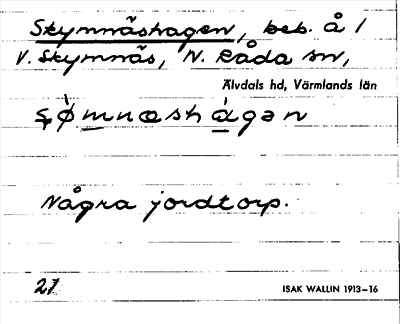 Skymnäshagen, beb. å 1
V. Skymnäs, N. Råda sn,
Älvdals hd, Värmlands län
Några jordtorp.
21
ISAK WALLIN 1913–16